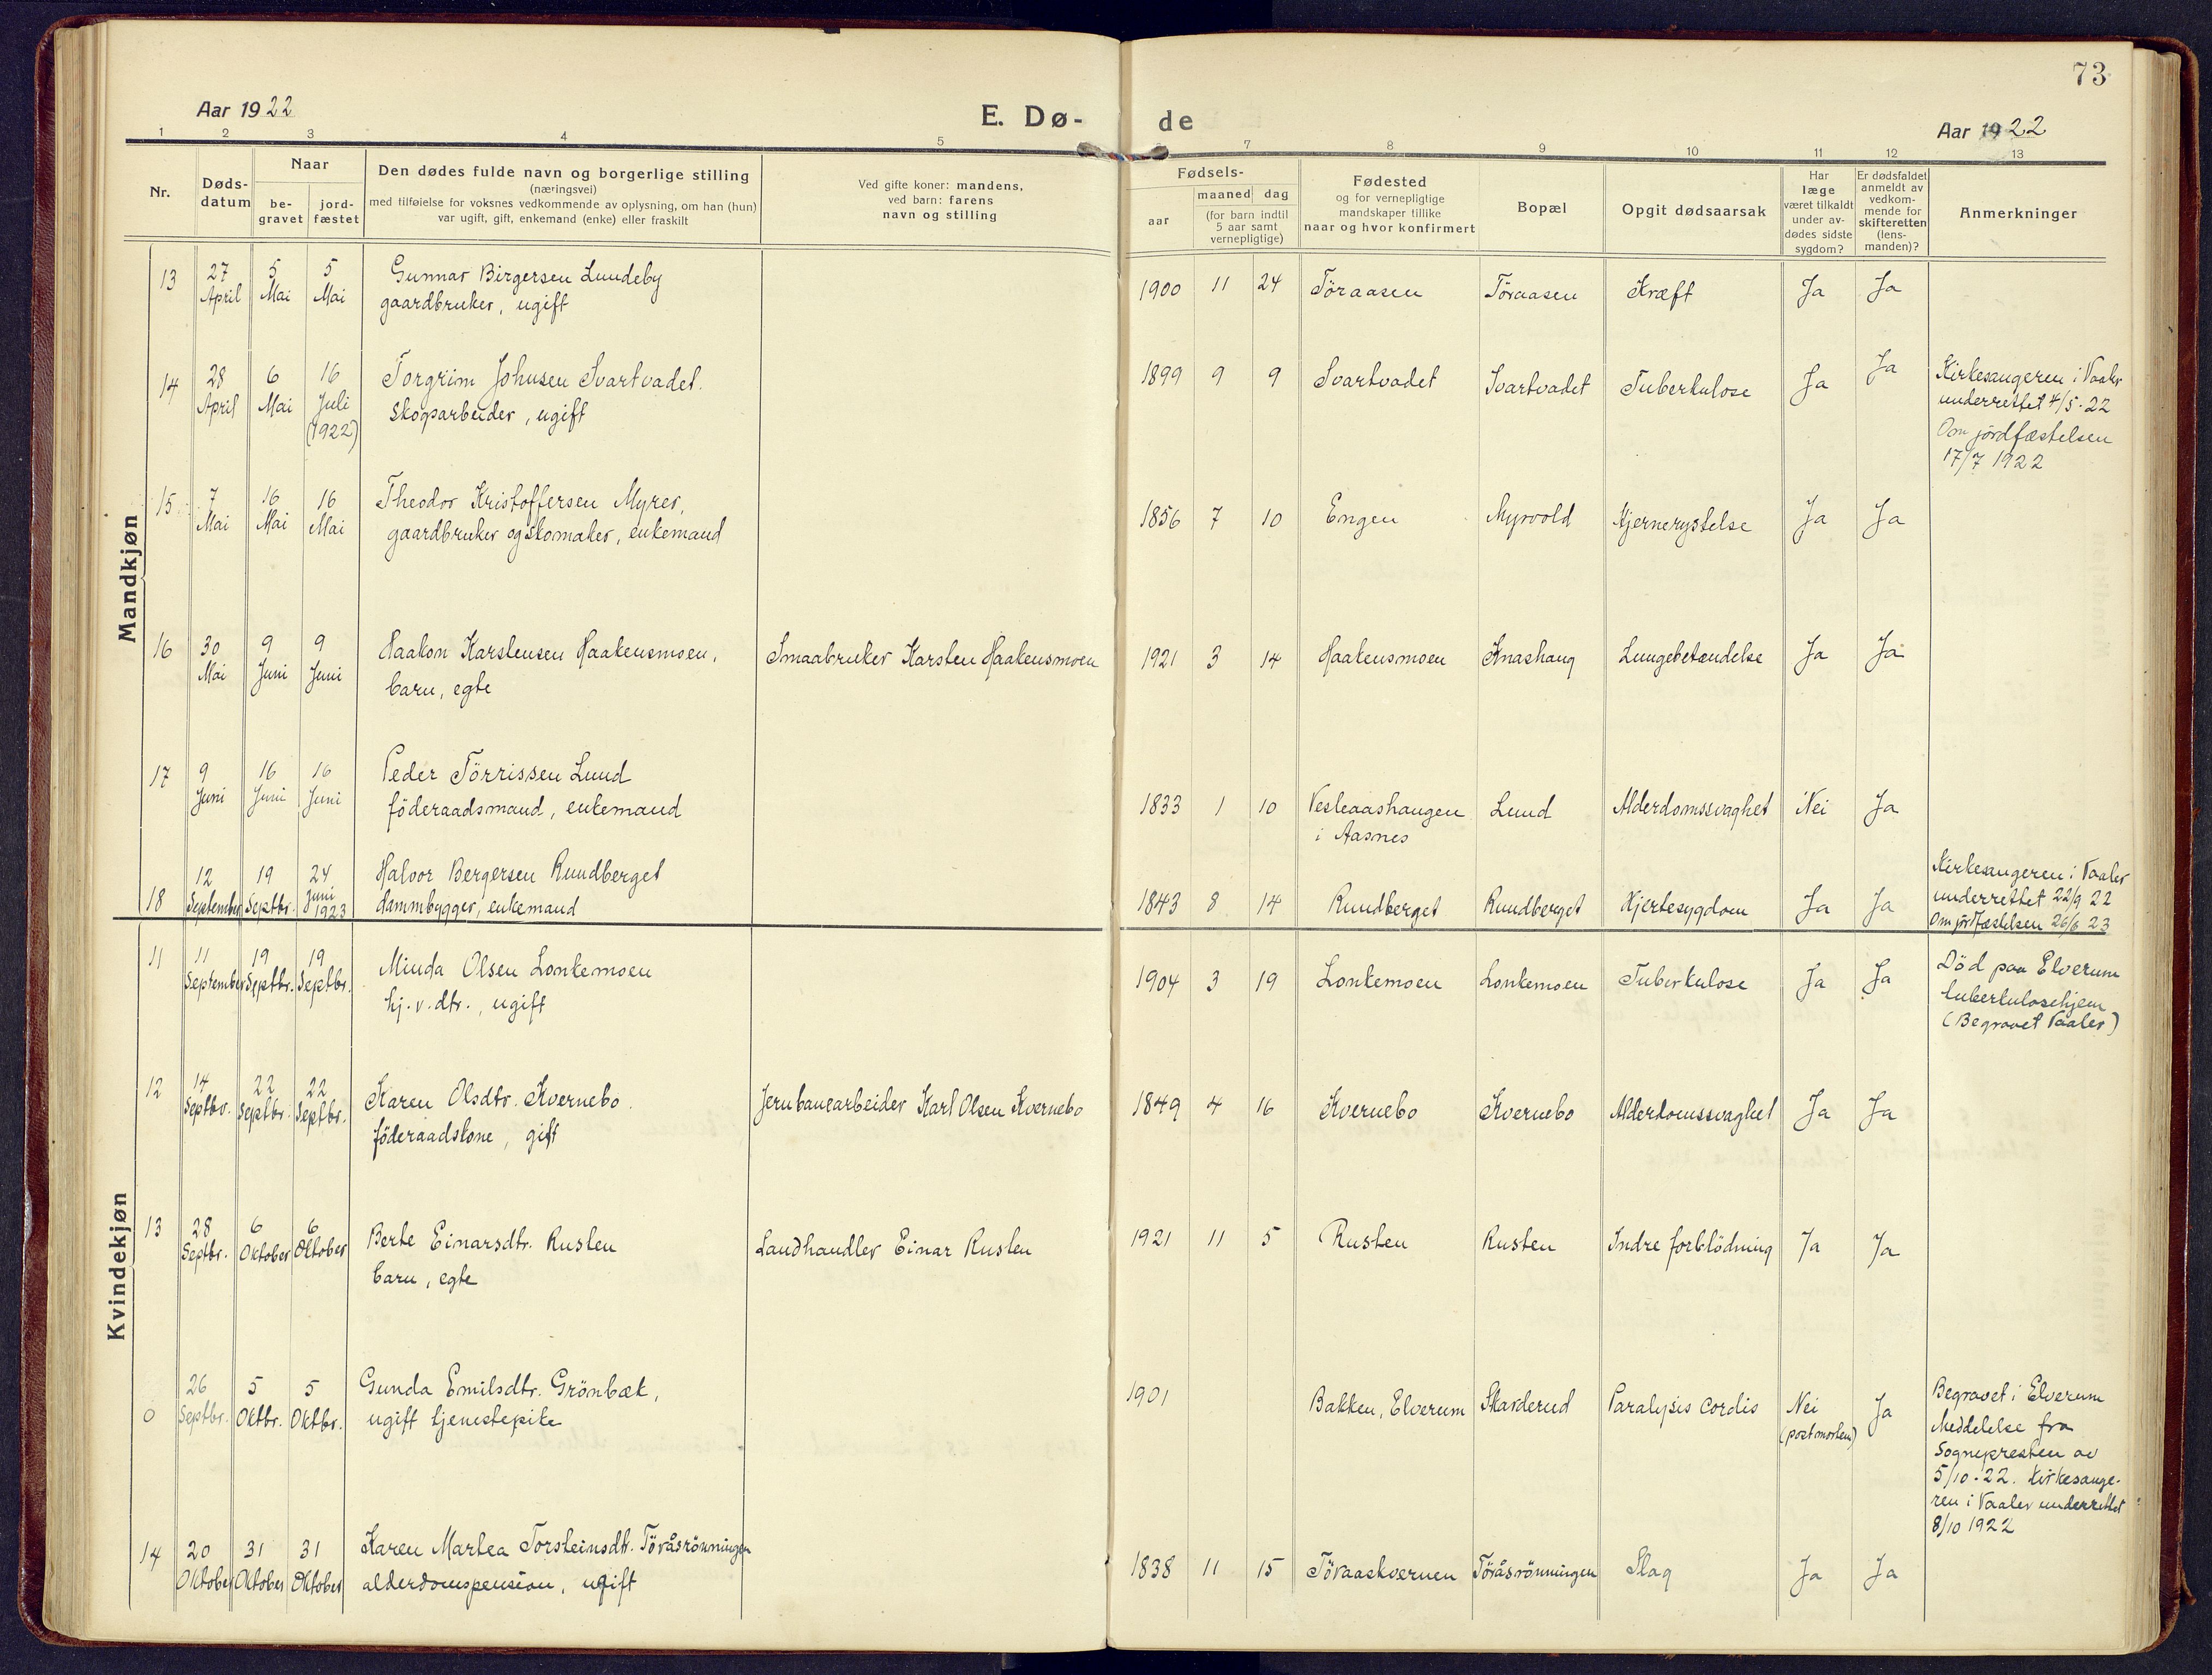 73
Aar 1922
E. Dø-
de
Aar 1922
1 2 3 4 5 7 8 9 10 11 12 13
Nr.
Døds-
datum
Naar
be-
gravet
jord-
fæstet
Den dødes fulde navn og borgerlige stilling
(næringsvei)
med tilføielse for voksnes vedkommende av oplysning, om han (hun)
var ugift, gift, enkemand (enke) eller fraskilt
Ved gifte koner: mandens,
ved barn: farens
navn og stilling
Fødsels-
aar
maaned dag
(for barn indtil
5 aar samt
vernepligtige)
Fødested
og for vernepligtige
mandskaper tillike
naar og hvor konfirmert
Bopæl
Opgit dødsaarsak
Har
læge
været tilkaldt
under av-
dødes sidste
sygdom?
Er dødsfaldet
anmeldt av
vedkom-
mende for
skifteretten
(lens-
manden)?
Anmerkninger
Mandkjøn
13 27 April 5 Mai 5 Mai
Gunnar Birgersen Lundeby
gaardbruker, ugift
1900 11 24 Töraasen Töraasen Kræft Ja Ja
14 28 April 6 Mai 16 Juli (1922)
Torgrim Johnsen Svartvadet.
Skogsarbeider, ugift
1899 9 9 Svartvadet Svartvadet Tuberkulose Ja Ja
Kirkesangeren i Vaaler
underrettet 4/5-22
Om jördfæstelsen
17/7 1922
15 7 Mai 16 Mai 16 Mai
Theodor Kristoffersen Myrer,
gaardbruker og skomaker, enkemand
1856 7 10 Engen Myrvold Hjernerystelse Ja Ja
16 30 Mai 9 Juni 9 Juni
Haakon Karstensen Haakensmoen,
barn, egte
Smaabruker Karsten Haakensmoen
1921 3 14 Haakensmoen Knashaug Lungebetændelse Ja Ja
17 9 Juni 16 Juni 16 Juni
Peder Törrissen Lund
föderaadsmand, enkemand
1833 1 10 Vesleaashaugen
i Aasnes
Lund Alderdomssvaghet Nei Ja
18 12 September 19 Septbr. 24 Juni 1923
Halvor Bergersen Rundberget
dammbygger, enkemand
1843 8 14 Rundberget Rundberget Hjertesygdom Ja Ja
Kirkesangeren i Vaaler
underrettet 22/9 22
Om jördfæstelsen 26/6 23
Kvindekjøn
11 11 September 19 Septbr. 19 Septbr.
Minda Olsen Lonkemoen
hj. v. dtr., ugift
1904 3 19 Lonkemoen Lonkemoen Tuberkulose Ja Ja
Död paa Elverum
tuberkulosehjem
(Begravet Vaaler)
12 14 Septbr. 22 Septbr. 22 Septbr.
Karen Olsdtr. Kvernebo.
föderaadskone, gift
Jernbanearbeider Karl Olsen Kvernebo
1849 4 16 Kvernebo Kvernebo Alderdomssvaghet Ja Ja
13 28 Septbr. 6 Oktober 6 Oktober
Berte Einarsdtr. Rusten
barn, egte
Landhandler Einar Rusten
1921 11 5 Rusten Rusten Indre forblödning Ja Ja
0 26 Septbr. 5 Oktbr. 5 Oktbr.
Gunda Emilsdtr. Grönbæk,
ugift tjenestepike
1901 Bakken, Elverum Skarderud Paralysis cordis Nei
(post mortem)
Ja
Begravet i Elverum
Meddelelse fra
Sognepresten av
5/10-22. Kirkesange-
ren i Vaaler underrettet
8/10 1922
14 20 Oktober 31 Oktober 31 Oktober
Karen Martea Torsteinsdtr. Töråsrönningen
alderdomspension, ugift
1838 11 15 Töraaskvernen Töråsrönningen Slag Ja Ja